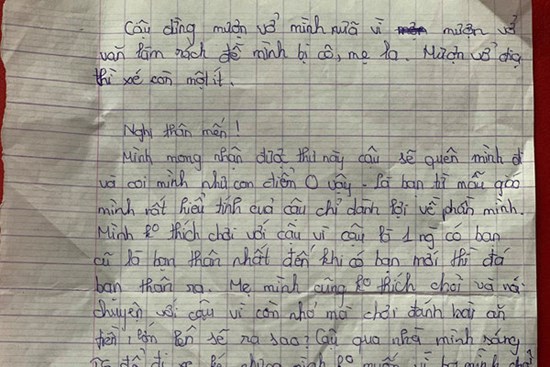 Cậu đừng mượn vở mình nữa vì mượn vở
văn làm rách để mình bị cô, mẹ la. Mượn vở địa
thì xé còn một ít.
Nghi thân mến!
Mình mong nhận được thư này cậu sẽ quên mình đi
và coi mình như con điên O vậy. Là bạn từ mẫu giáo
mình rất hiểu tính của cậu chỉ dành lợi về phần mình.
Mình ko thích chơi với cậu vì cậu là 1 ng có bạn
cũ là bạn thân nhất đến khi có bạn mới thì đá
bạn thân ra. Mẹ mình cũng ko thích chơi và nói
chuyện với cậu vì còn nhỏ mà chơi đánh bài ăn
tiền, lớn lên sẽ ra sao? Cậu qua nhà mình sáng